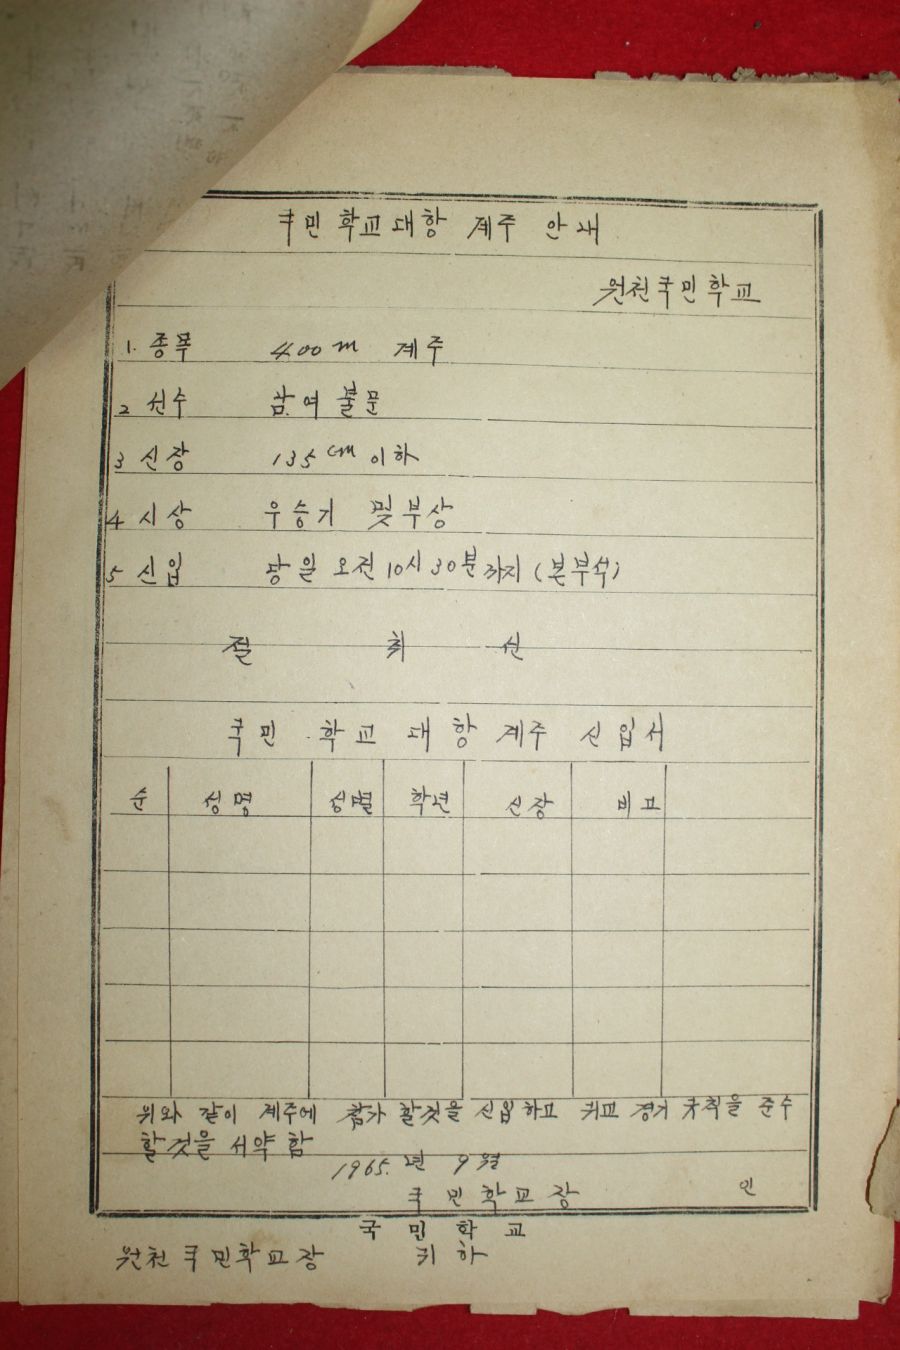 국민학교대항 계주 안내
원천국민학교
1. 종목 400m 계주
2 선수 남.여 불문
3 신장 135cm 이하
4 시상 우승기 및 부상
5 신입 당일 오전 10시 30분 까지 (본부석)
절 취 선
국민 학교 대항 계주 신입서
순 성명 성별 학년 신장 비고
위와 같이 계주에 참가 할것을 신입하고 귀교 경기 규칙을 준수
할것을 서약 함
1965. 년 9월
국민학교장 인
국민학교
원천국민학교장 귀하